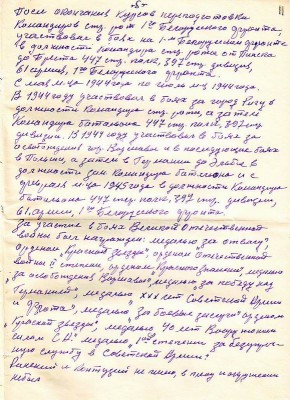 -5-
11
После окончания Курсов переподготовки
Командиров стр. рот 1го Белорусского фронта,
участвовал в боях на 1-м Белорусском фронте
в должности командира стр. роты от Пинска
до Бреста 447 стр. полк, 397 стр. дивизии,
61 армии, 1го Белорусского фронта.
С мая м-ца 1944 года по июль м-ц 1944 года.
В 1944 году участвовал в боях за город Ригу в
должности Командира стр. роты, а затем
Командира батальона 447 стр. полк, 397 стр.
дивизии. В 1944 году участвовал в боях за
освобождение гор. Варшава и в последующие боях
в Польше, а затем в Германии до Эльбы в
должности зам. Командира батальона и с
февраля м-ца 1945 года в должности Командира
батальона 447 стр. полк, 397 стр. дивизии,
61 армии, 1го Белорусского фронта.
За участие в боях Великой Отечественной
войны был награжден: медалью "за отвагу",
орденом "Красной Звезды", орденом "Отечественной
войны II степени, орденом Красного Знамени", медалью
"за освобождение Варшавы" медалью "за победу над
Германией", медалью "XXX лет Советской Армии
и Флота", медалью "За боевые заслуги" орденом
"Красной Звезды", медалью "40 лет Вооруженных
силам С.А." медалью "1ой степени за безупреч-
ную службу в Советской Армии."
Ранений и Контузий не имею, в плену и окружении
не был